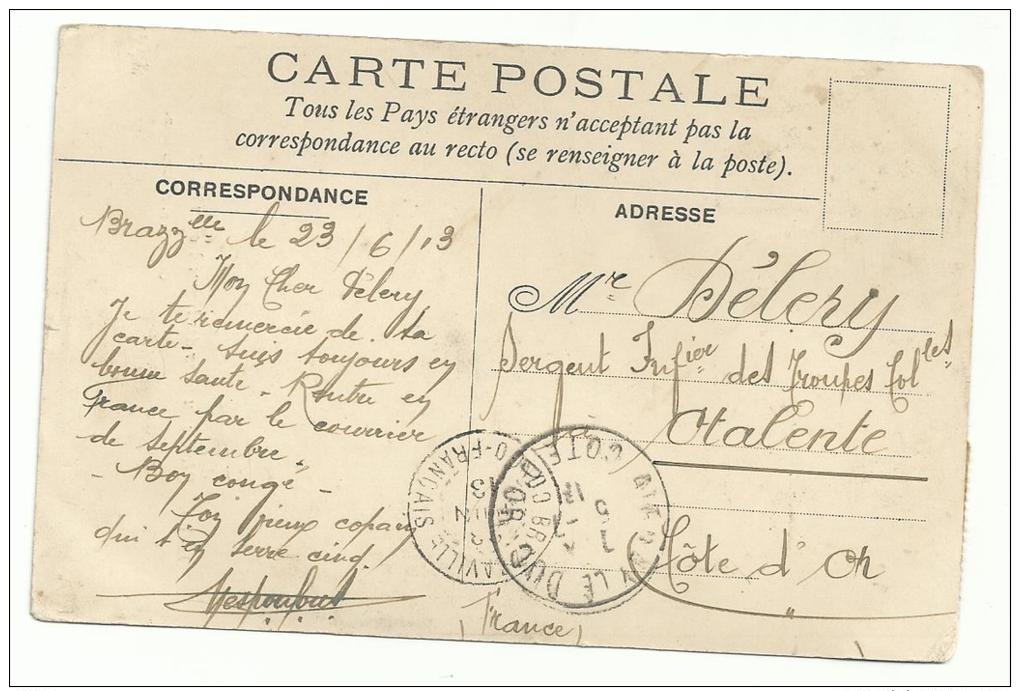 CARTE POSTALE
Tous les Pays étrangers n'acceptant pas la
correspondance au recto (se renseigner à la poste).
CORRESPONDANCE
Brazzlle le 23/6/13
Mon Cher Délery
Je te remercie de ta
carte - suis toujours en
bonne santé - Rentre en
France par le courrier
de septembre.
- Bon congé -
Ton vieux copain
qui t'en serre cinq.
ADRESSE
Mr Délery
Sergent Infier des Troupes Colles
à Etalente
Côte d'Or
(France)
CONGO-FRANÇAIS
BRAZZAVILLE
JUIN
13
AIGNAY LE DUC
CÔTE D'OR